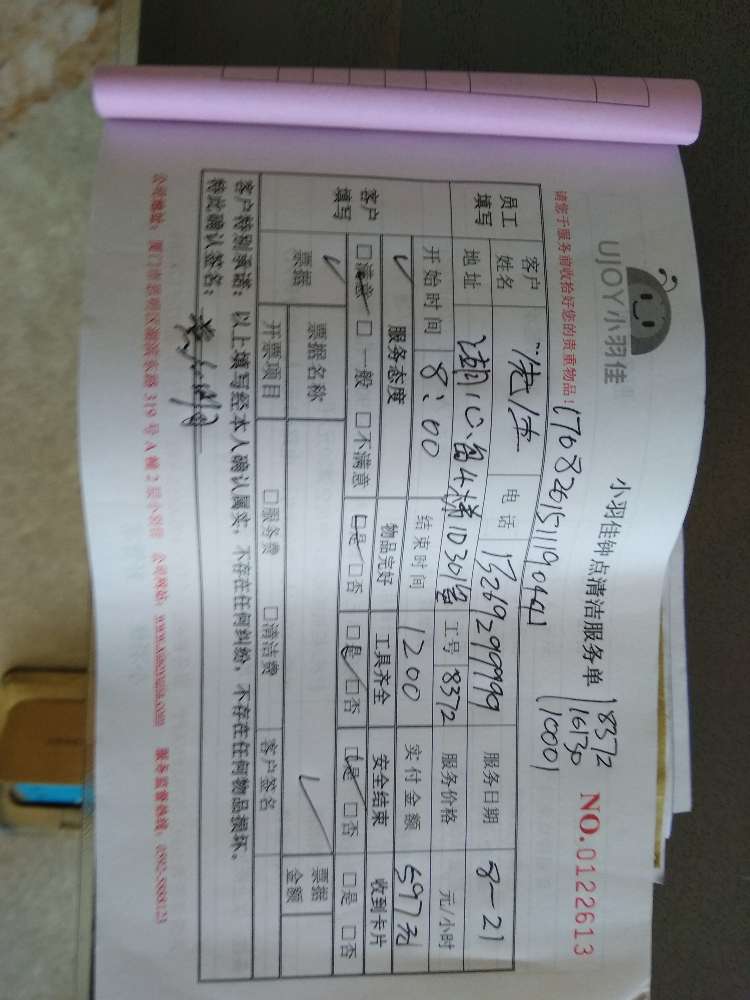 UJOY小羽佳
小羽佳钟点清洁服务单
8372
16130
10001
NO.0122613
请您于服务前收拾好您的贵重物品!
17682615111190441
员工填写 客户姓名 电话 13269299999 服务日期 8-21
地址 湖心岛 10301 工号 8372 服务价格 元/小时
开始时间 8:00 结束时间 1200 实付金额 597元
客户填写 服务态度 物品完好 工具齐全 安全结束 收到卡片
□满意 □一般 □不满意 □是 □否 □是 □否 □是 □否 □是 □否
票据 票据名称 票据金额
开票项目 □服务费 □清洁费 客户签名
客户特别承诺:以上填写经本人确认属实,不存在任何纠纷,不存在任何物品损坏。
特此确认签名:
公司地址:厦门市思明区湖滨东路319号A幢2层小羽佳 公司网站:www.xiaoyujia.com 服务监督热线:0592-5888123